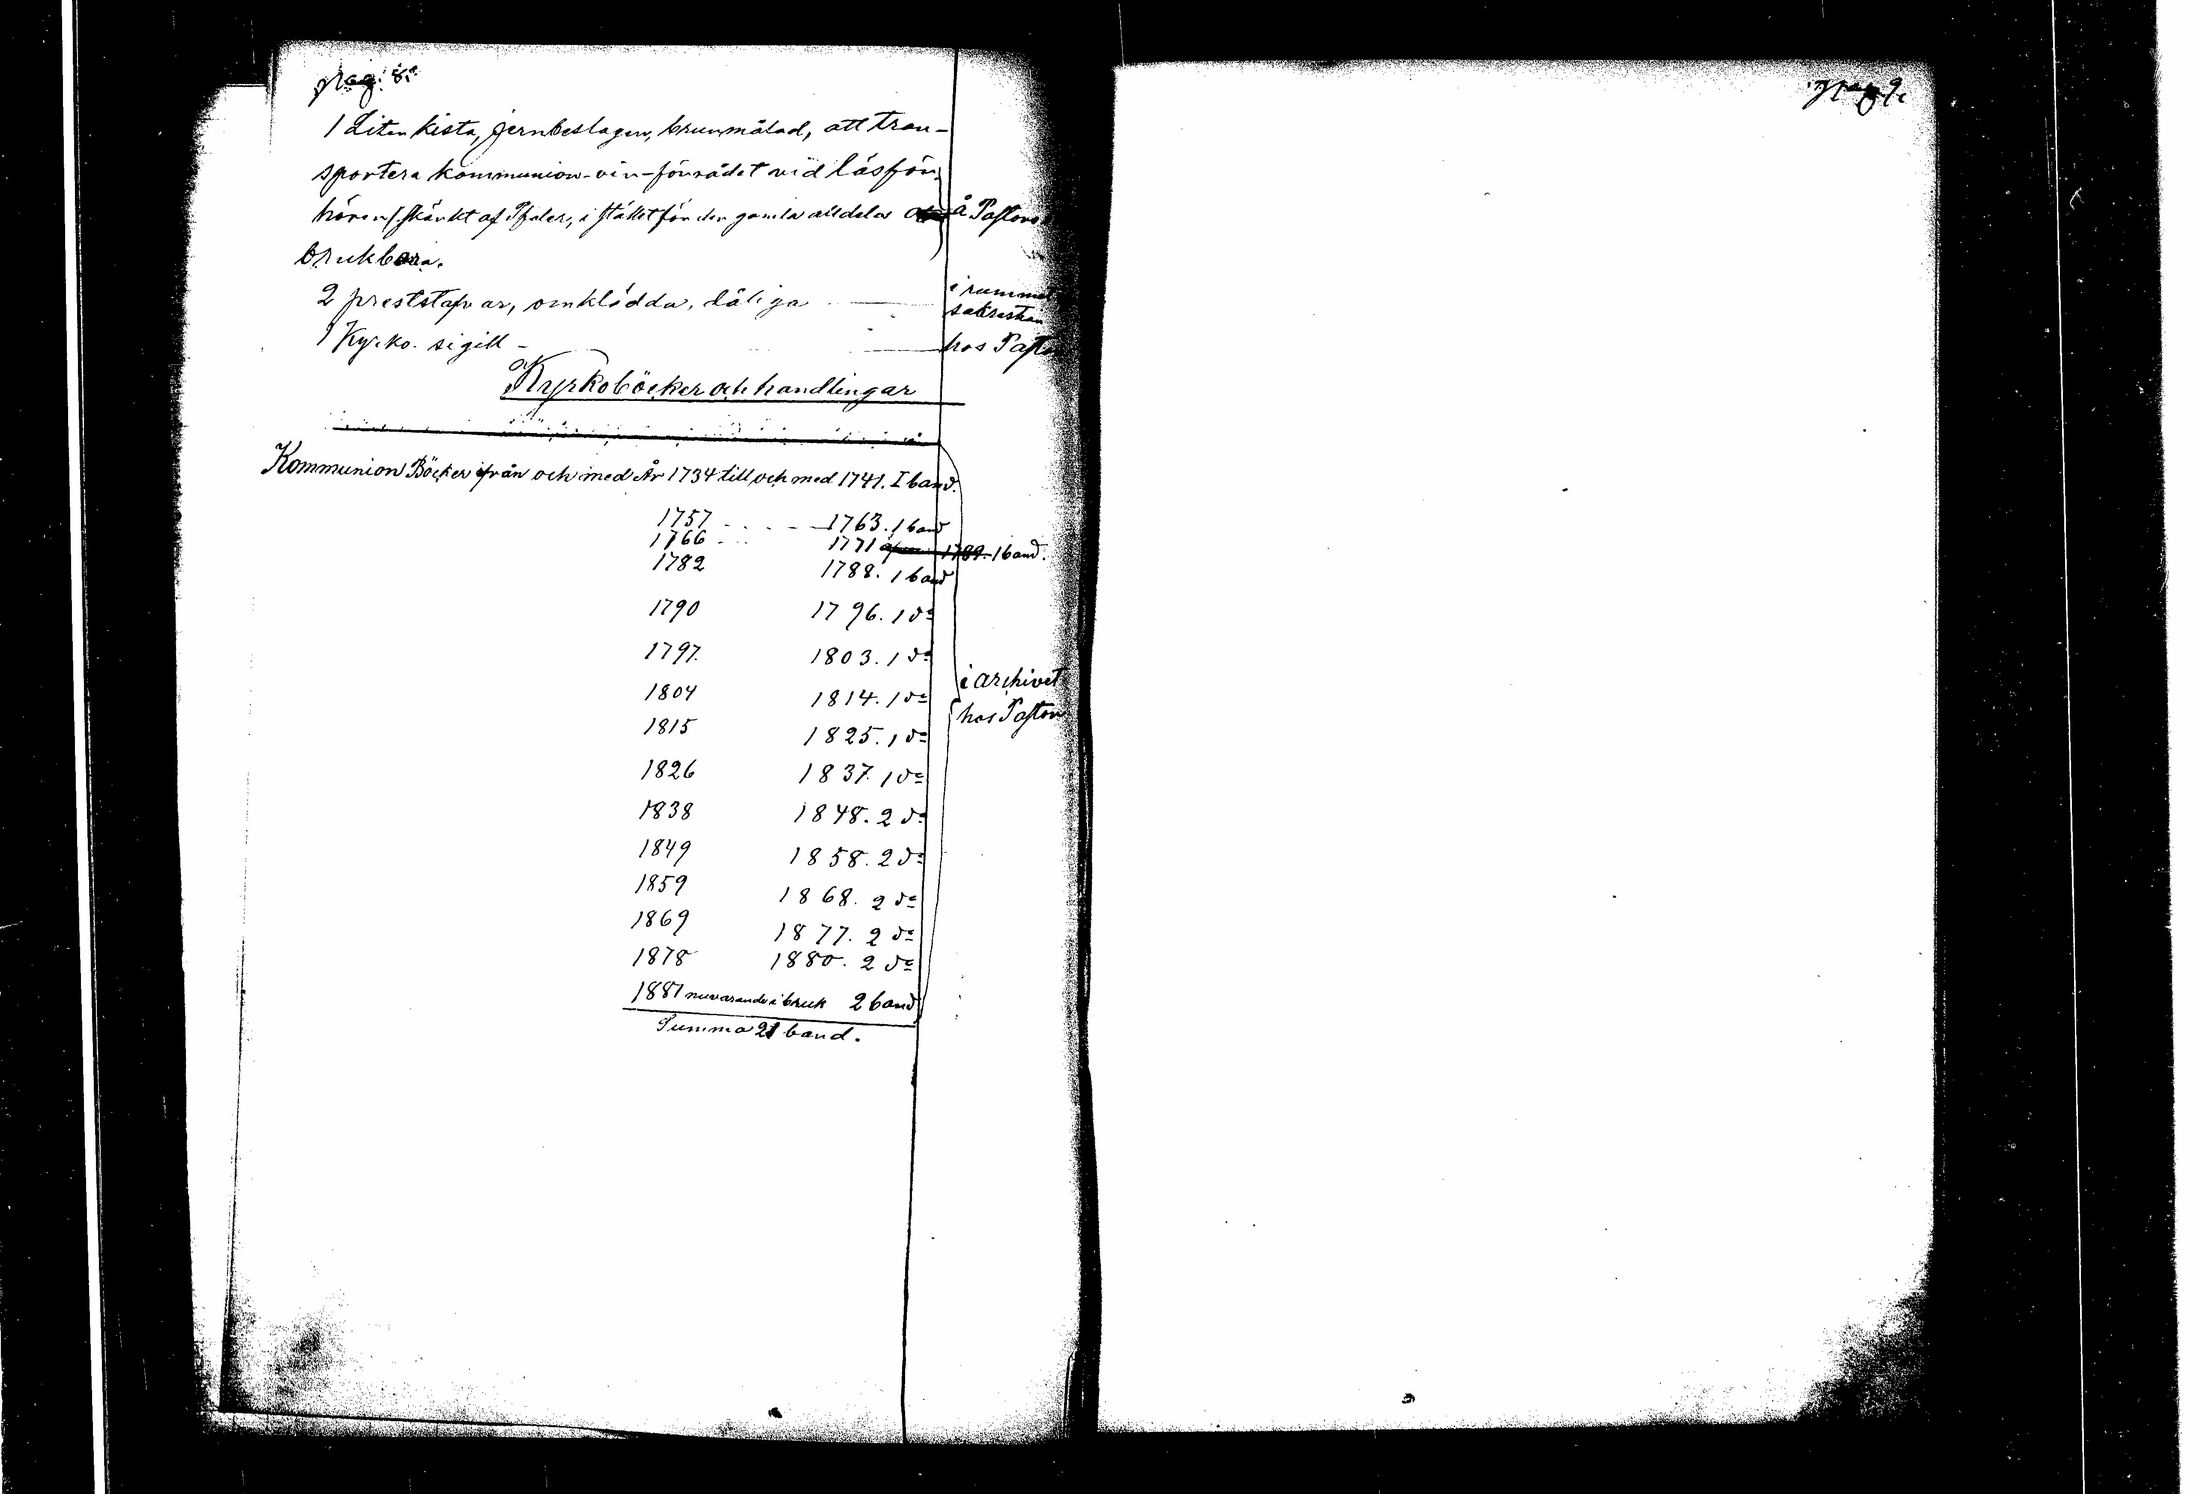 pag. 8.
1 Liten kista, jernbeslagen, brunmålad, att tran-
sportera kommunion-vin-förrådet vid läsför-
hören /. skänkt af Pfaler, i stället för den gamla alldeles å Pastors
brukbara.
2 preststafvar, omklädda, dåliga i rummet
sakristian
1 Kyrko-sigill - hos Pastor
Kyrkoböcker och handlingar
Kommunion Böcker ifrån och med År 1734 till och med 1741. I band.
1757 - - - - 1763. 1 band
1766 - - 1771 1789. 1 band.
1782 1788. 1 band
1790 1796. 1 do
1797. 1803. 1 do
i archivet
1804 1814. 1 do
hos Pastor
1815 1825. 1 do
1826 1837. 1 do
1838 1848. 2 do
1849 1858. 2 do
1859 1868. 2 do
1869 1877. 2 do
1878 1880. 2 do
1881 nuvarande i bruk 2 band
Summa 21 band.
pag 9.